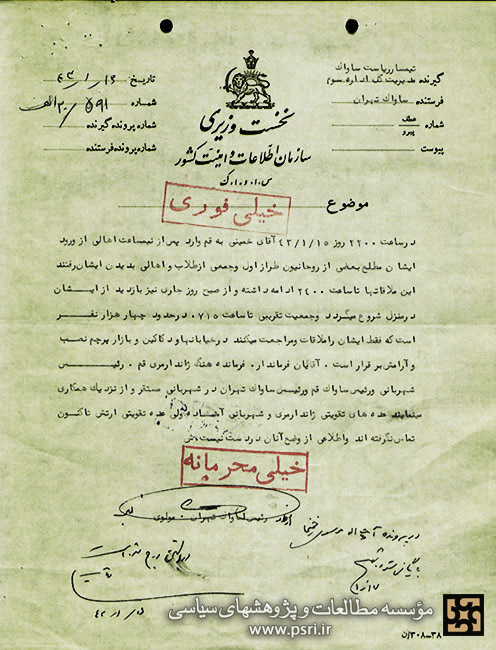 تیمسار ریاست ساواک
گیرنده مدیریت کل اداره سوم
فرستنده ساواک تهران
شماره عطف پیرو
پیوست
نخست وزیری
سازمان اطلاعات و امنیت کشور
س.ا.و.ا.ک
تاریخ
شماره
شماره پرونده گیرنده
شماره پرونده فرستنده
موضوع
خیلی فوری
در ساعت ۲۲۰۰ روز ۴۳/۱/۱۵ آقای خمینی به قم وارد پس از نیمساعت اهالی از ورود
ایشان مطلع بعضی از روحانیون طراز اول وجمعی ازطلاب و اهالی بدیدن ایشان رفتند
این ملاقاتها تا ساعت ۲۴۰۰ ادامه داشته و از صبح روز جاری نیز بازدید از ایشان
در منزل شروع میگردد وجمعیت تقریبی تا ساعت ۰۷۱۵ درحدود چهار هزار نفر
است که فقط ایشان راملاقات ومراجعت میکنند درخیابانها و دکاکین و بازار پرچم نصب
و آرامش بر قرار است . آقایان فرماندار . فرمانده هنگ ژاندارمری قم . رئیس
شهربانی و رئیس ساواک قم ورئیس ساواک تهران در شهربانی مستقر و از نزدیک همکاری
مینمایند عده های تقویتی ژاندارمری و شهربانی آماده ولی عده تقویتی ارتش تاکنون
تماس نگرفته اند واطلاعی از وضع آنان در دست نیست
خیلی محرمانه
رئیس ساواک تهران . مولوی
در پرونده
مؤسسه مطالعات و پژوهشهای سیاسی
www.psri.ir